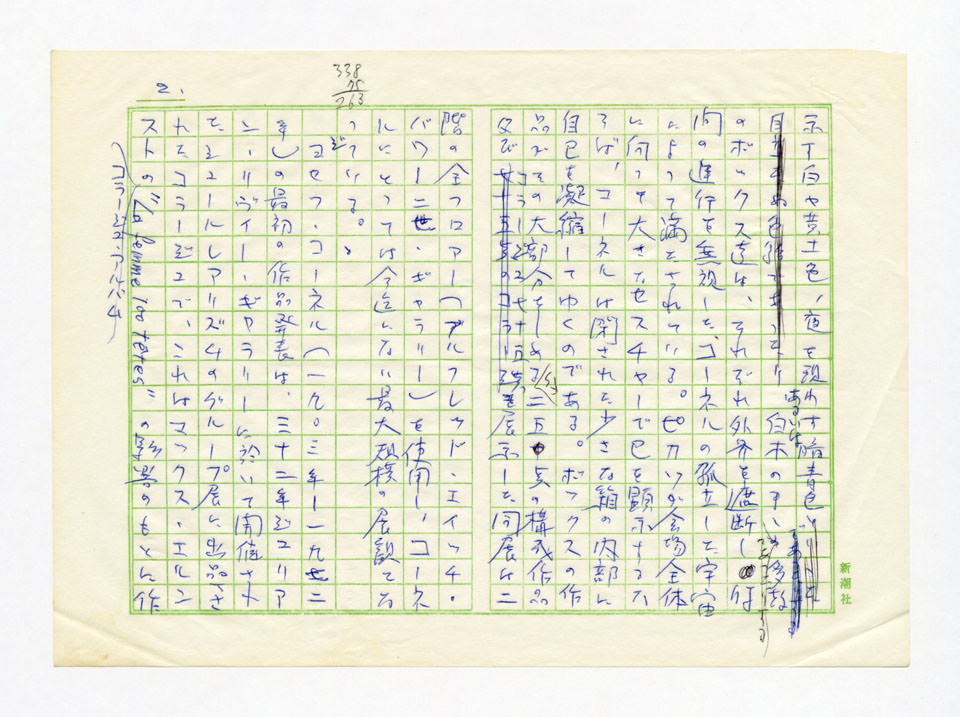 2.
338
75
263
示す白や黄土色、夜を現わす暗青色
あるいは白木のまゝの多数
のボックス達は、それぞれ外界を遮断し
間の進行を無視した、コーネルの孤立した宇宙
によって満たされている。ピカソが会場全体
に向って大きなゼスチャーで己を顕示するな
らば、コーネルは閉された小さな箱の内部に
自己を凝縮してゆくのである。ボックスの作
品がその大部分をしめる約二五〇点の構成作品
及びコラージュ七十五点を展示した同展は二
階の全フロアー(アルフレッド・エイッチ・
バワー二世・ギャラリー)を使用し、コーネ
ルにとっては今迄にない最大規模の展観とな
っている。
ヨゼフ・コーネル(一九〇三年—一九七二
年)の最初の作品発表は、三十二年ジュリア
ン・リヴィー・ギャラリーに於いて開催され
た、シュールレアリズムのグループ展に出品さ
れたコラージュで、これはマックス・エルン
ストの "La femme 100 têtes" の影響のもとに作
コラージュ・アルバム
新潮社